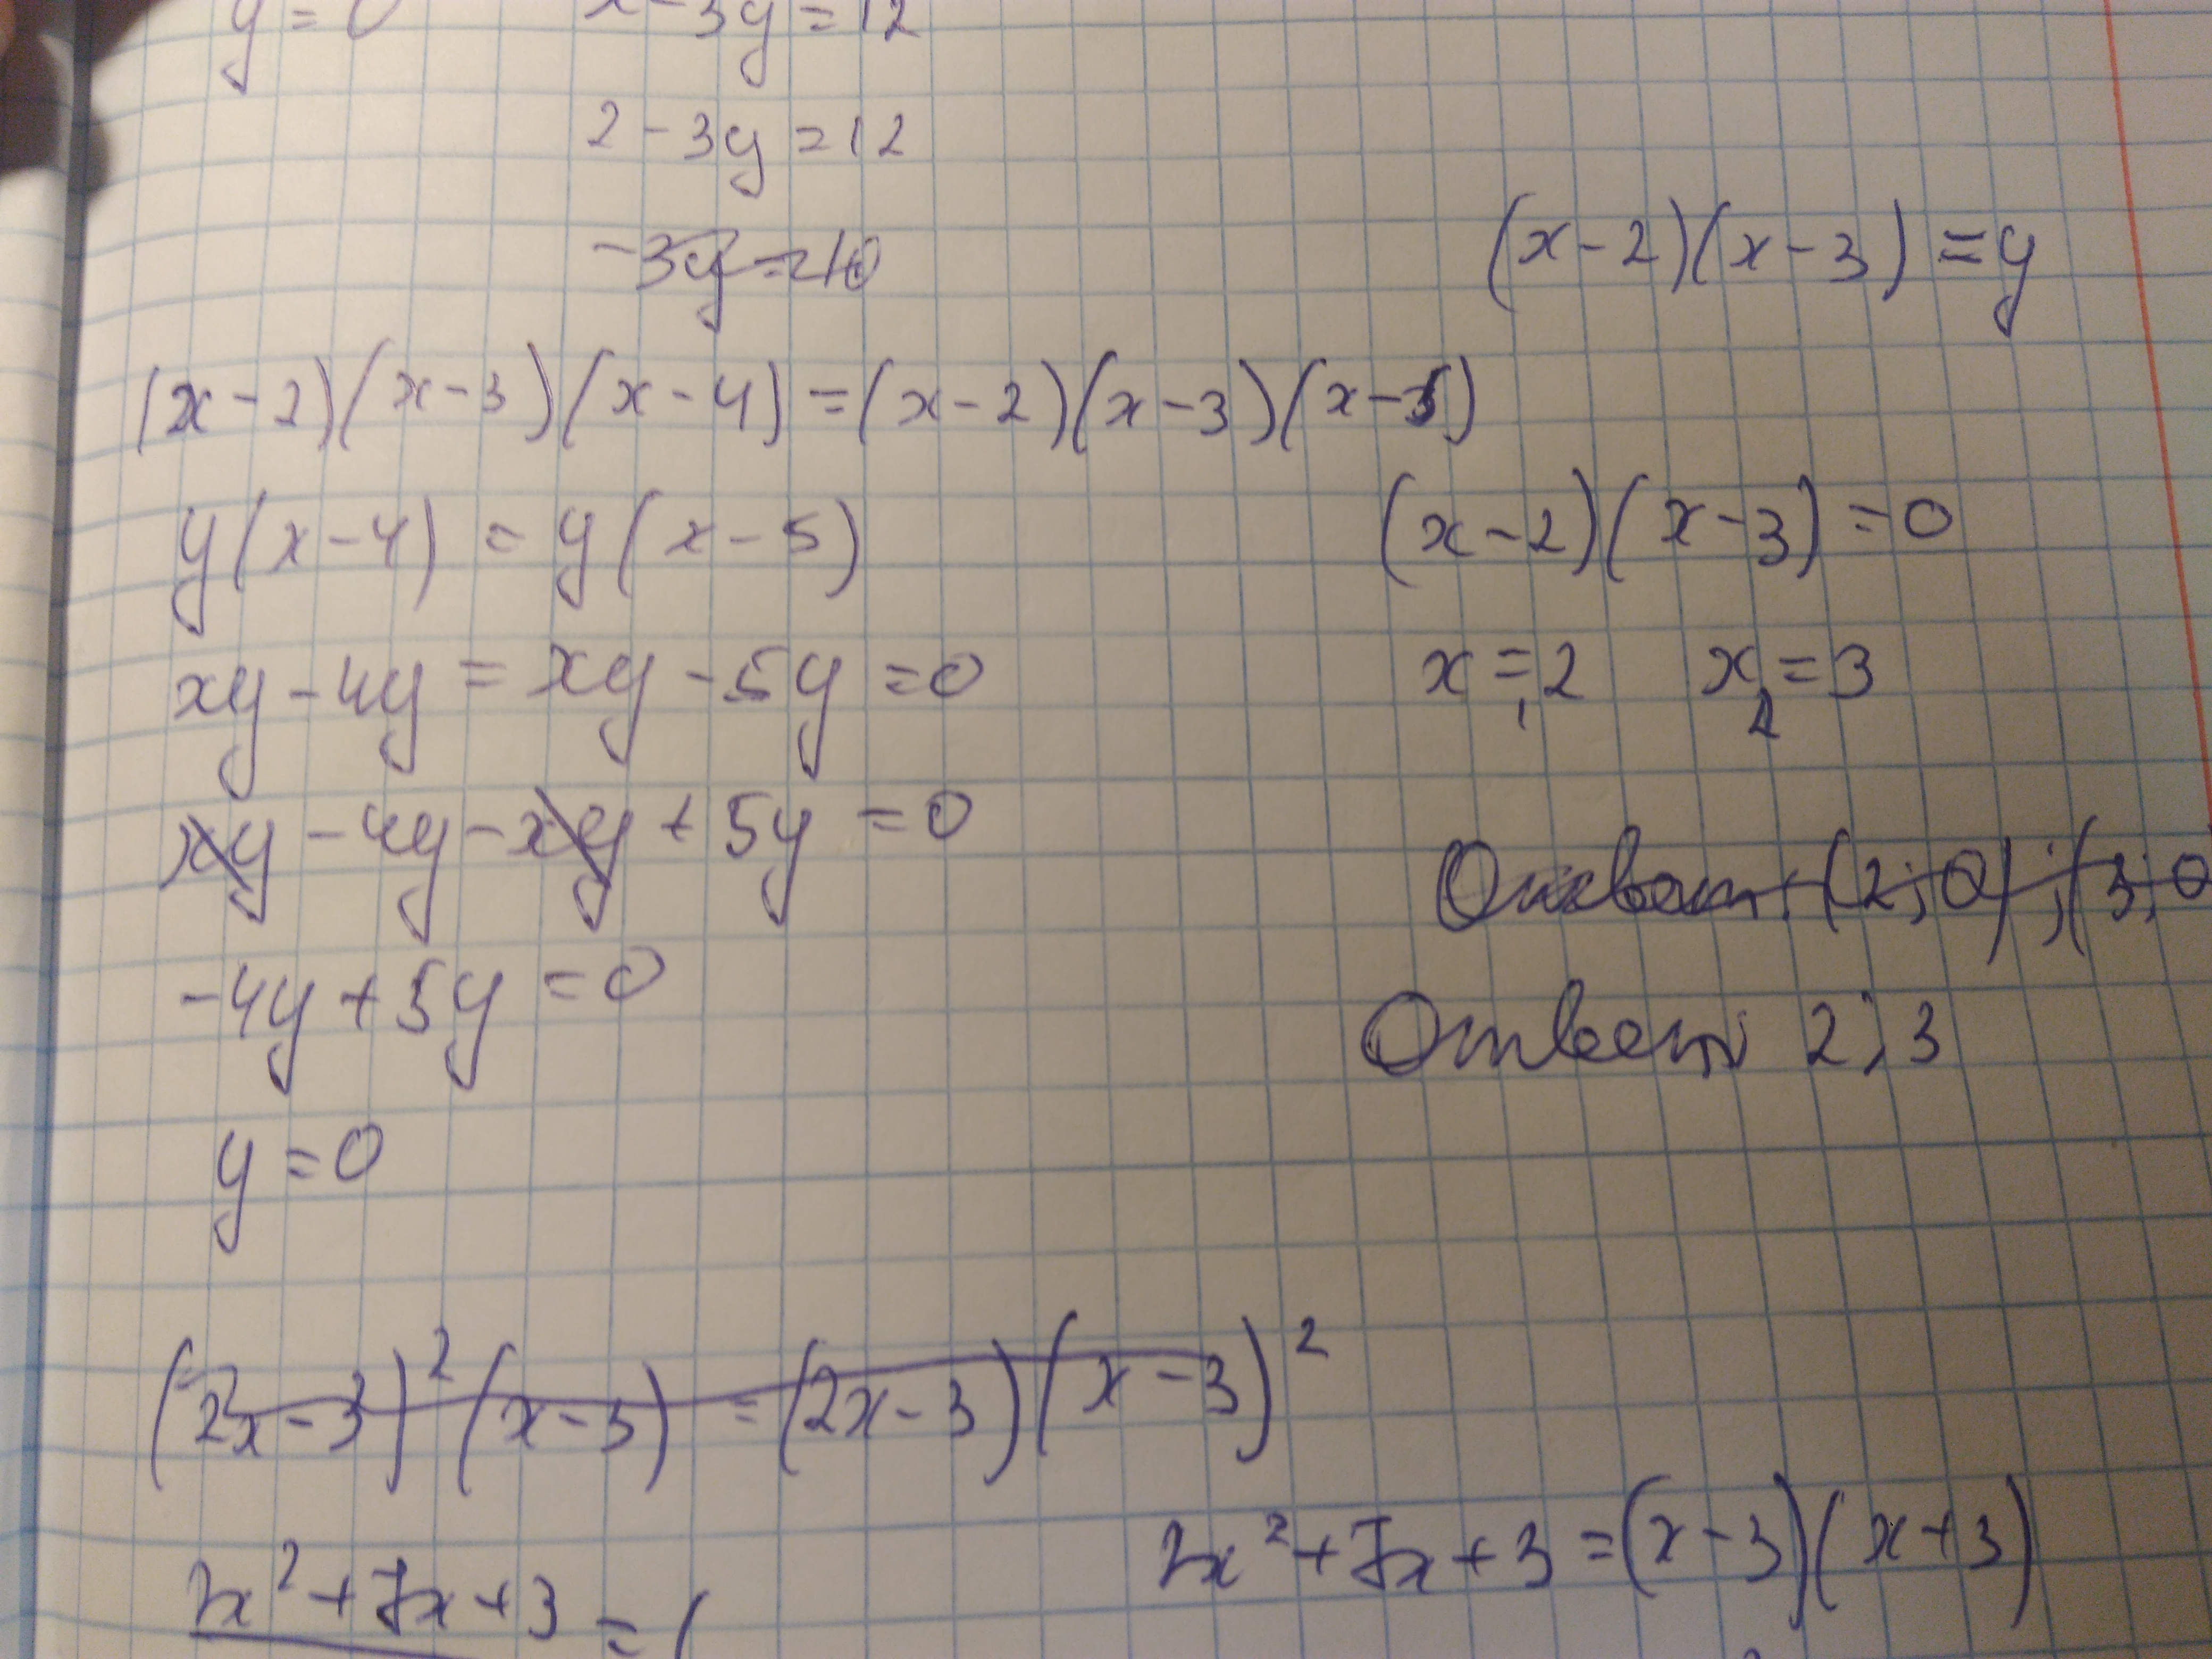 y = 0
x - 3y = 12
2 - 3y = 12
-3y = 10
(x - 2)(x - 3) = y
(x - 2)(x - 3)(x - 4) = (x - 2)(x - 3)(x - 5)
y(x - 4) = y(x - 5)
(x - 2)(x - 3) = 0
xy - 4y = xy - 5y = 0
x₁ = 2 x₂ = 3
xy - 4y - xy + 5y = 0
Ответ: (2; 0); (3; 0
-4y + 5y = 0
Ответ: 2; 3
y = 0
(2x - 3)² (x - 3) = (2x - 3)(x - 3)²
2x² + 7x + 3 = (x - 3)(x + 3)
2x² + 7x + 3 = (